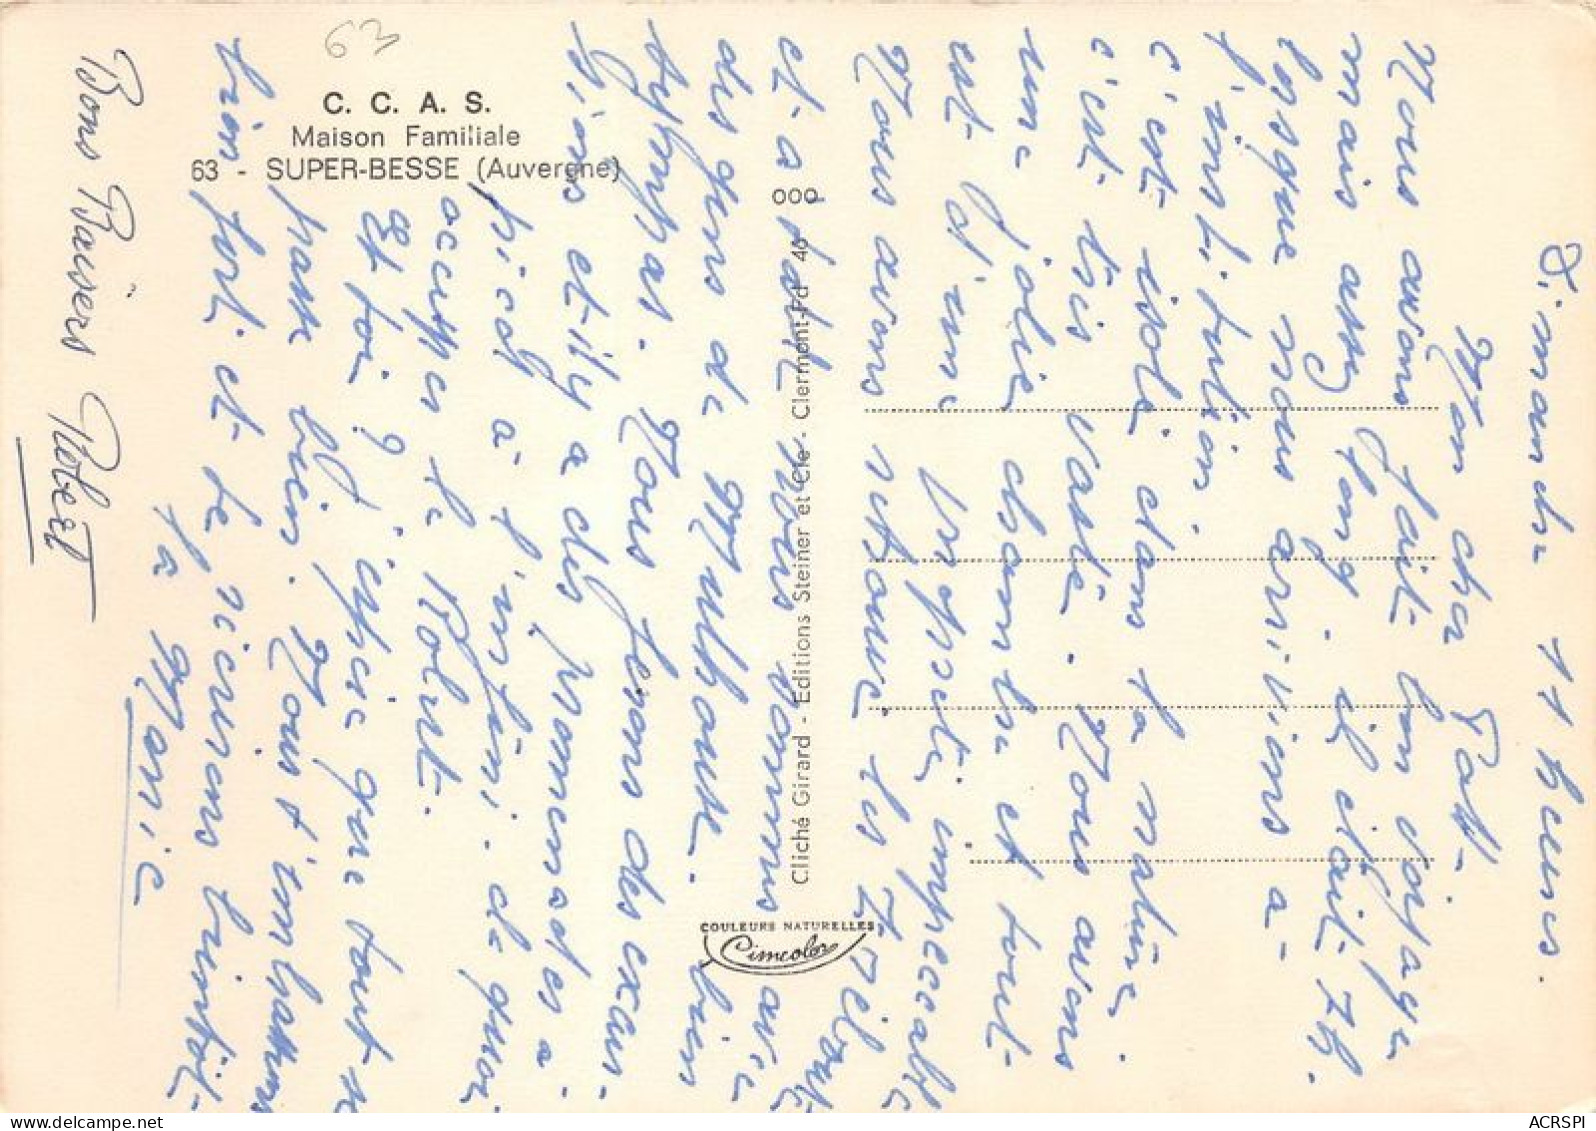 63
C. C. A. S.
Maison Familiale
63 - SUPER-BESSE (Auvergne)
Cliché Girard - Editions Steiner et Cie - Clermont-Fd 46
COULEURS NATURELLES
Cimcolor
Dimanche 11 heures.
Mon cher
Nous avons fait bon voyage
mais assez long il était 7h.
lorsque nous arrivions à
l'institution.
C'est isolé dans la nature,
c'est très vaste. Nous avons
une jolie chambre et tout
est d'une propreté impeccable
Nous avons retrouvé les
et à table nous sommes avec
des gens de Mulhouse. bien
sympas. Nous ferons des excur-
sions et il y a des promenades à
pied à l'infini. de quoi
occuper le Robert.
Et toi? j'espère que tout se
passe bien. Nous t'embrassons
bien fort et te dirons bientôt
ta Marie
Bons Baisers Robert
ACRSPI